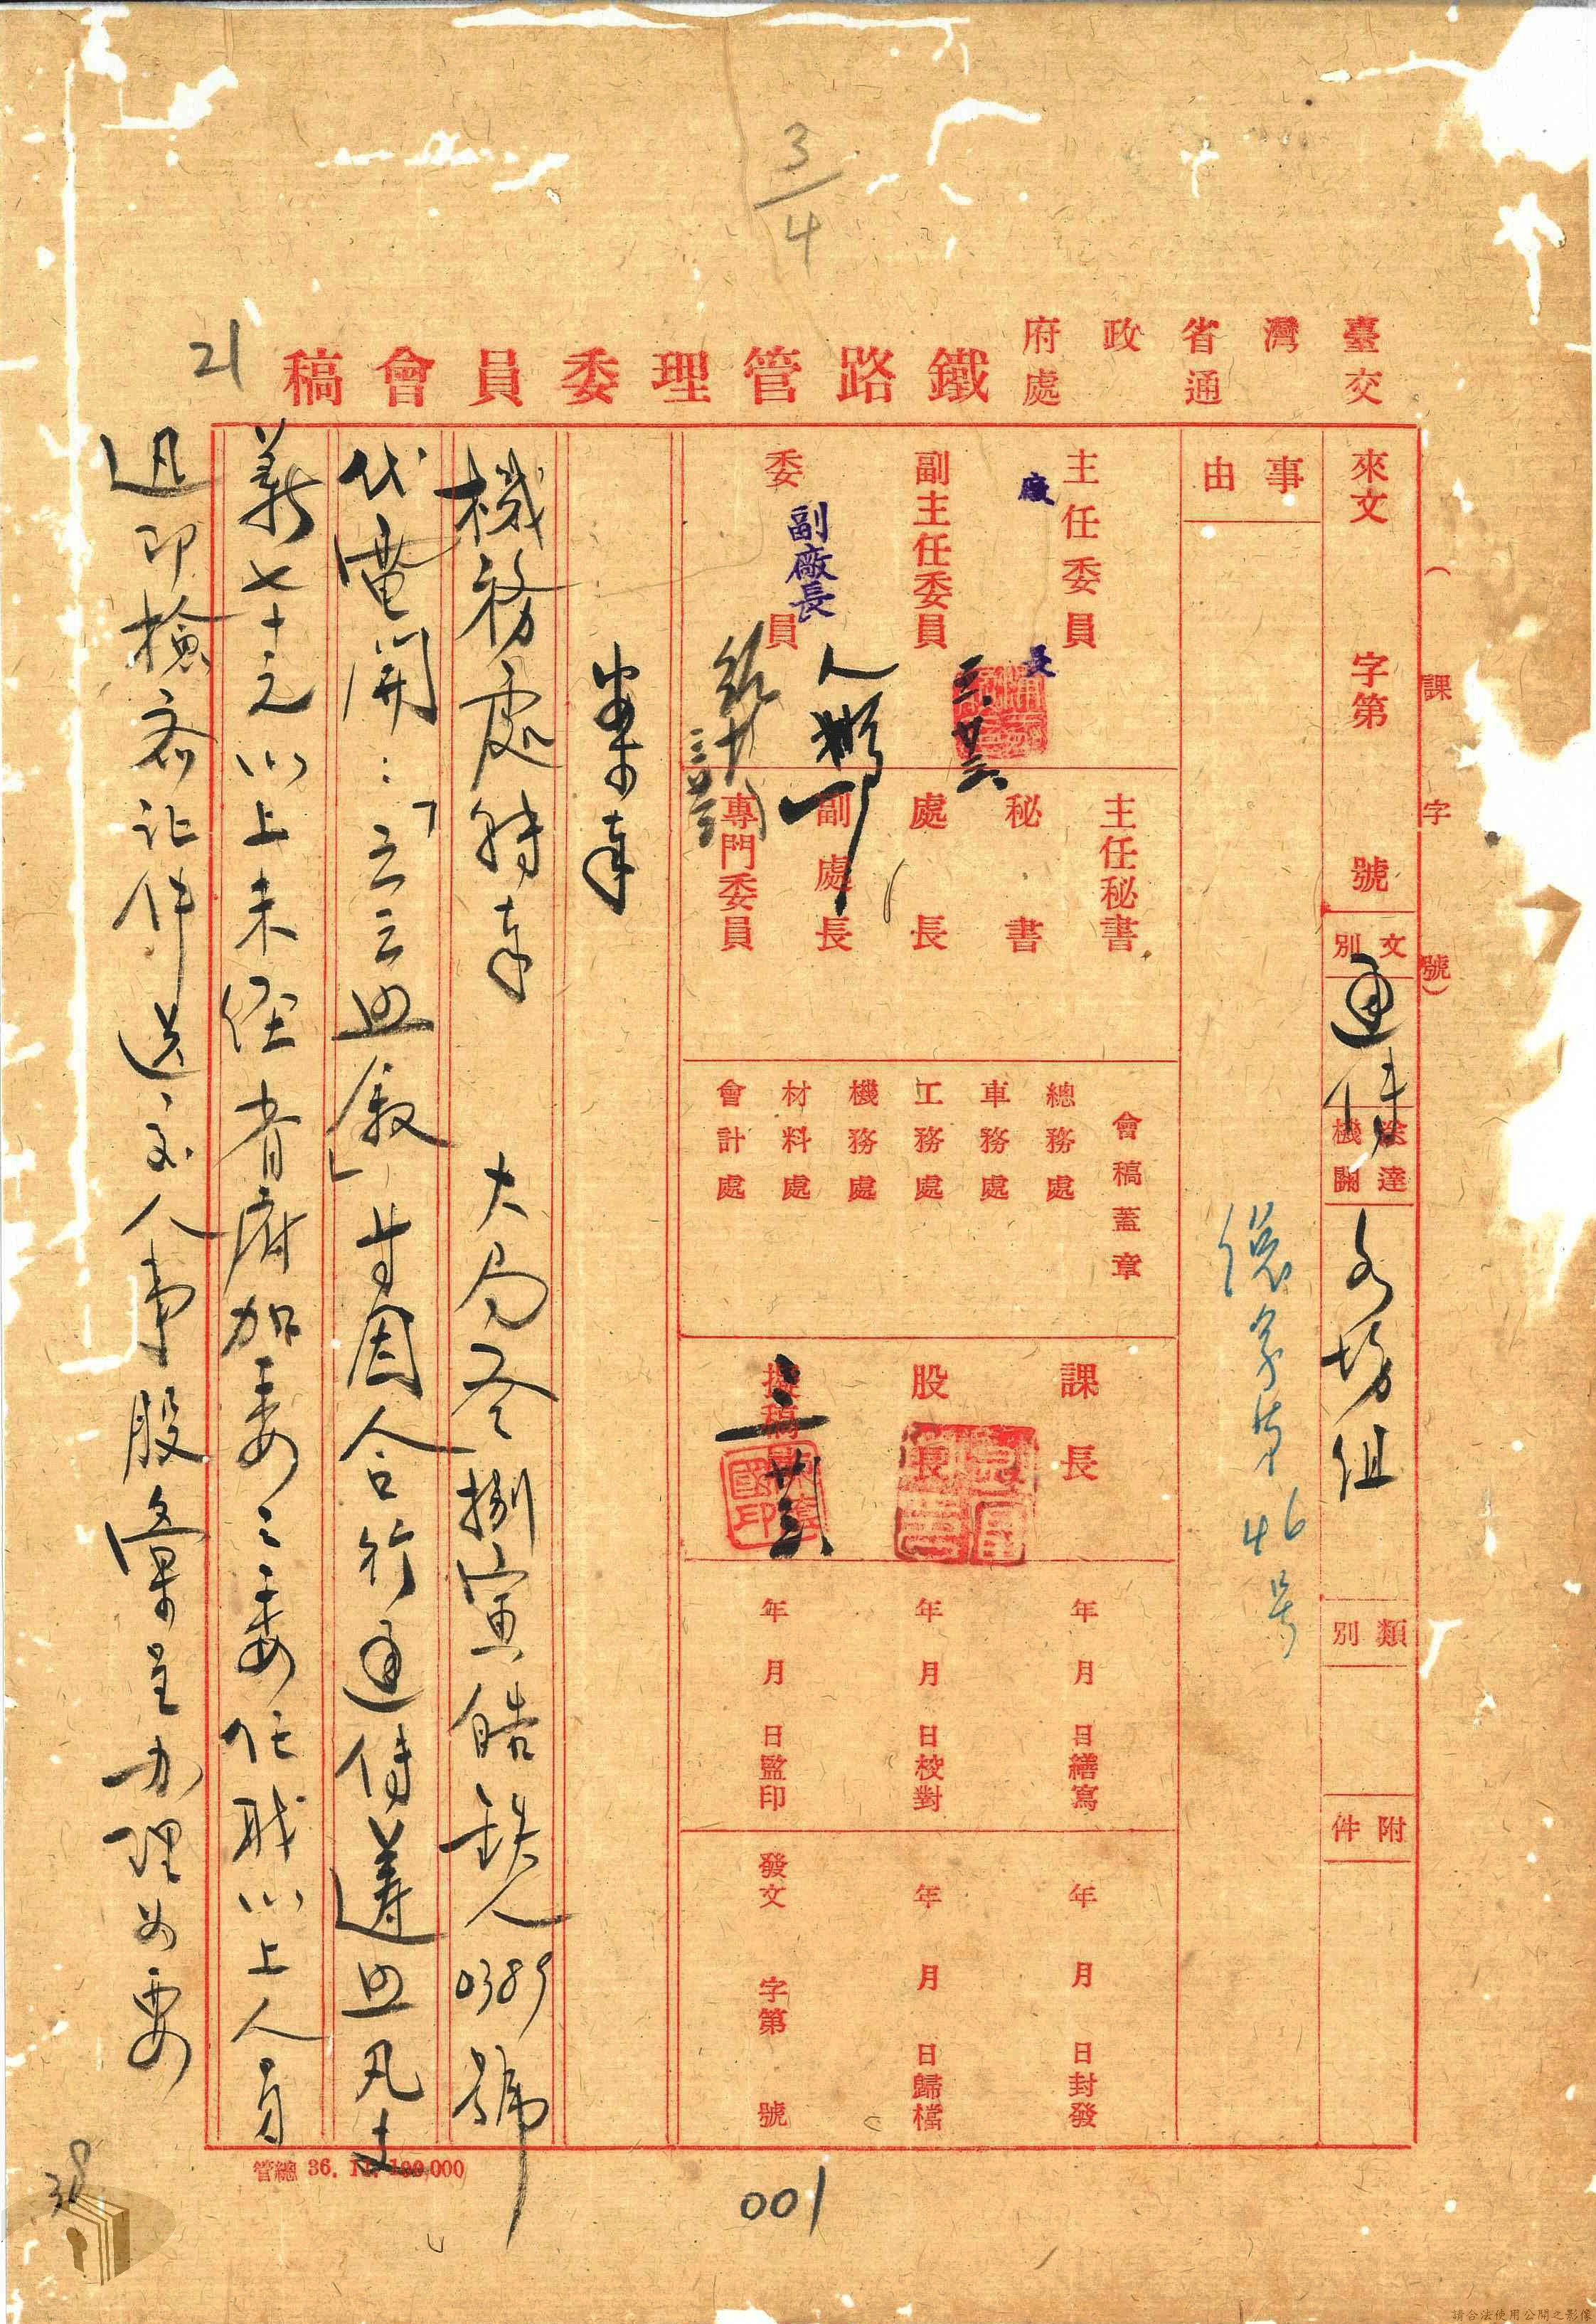 3/4
21
臺灣省政府
交通處
鐵路管理委員會稿
(課字號)
來文 字第 號
文別 通傳
送達機關 各場組
類別
附件
事由
總字第46号
主任委員
廠長
副主任委員
委員
副廠長
主任秘書
秘書
處長
副處長
專門委員
會稿蓋章
總務處
車務處
工務處
機務處
材料處
會計處
課長
股長
擬稿
年月日繕寫
年月日校對
年月日監印
年月日封發
年月日歸檔
發文 字第 號
案奉
機務處轉奉 大局 捌寅皓 人0389號
代電開:「云云照敘」等因合行通傳遵照凡支
薪七十元以上未經省府加委之委任職以上人員
迅即檢齊証件送交人事股彙呈办理為要
管總 36. 11. 100,000
001
38
請合法使用公開之影像